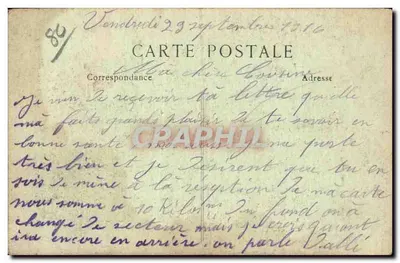 86
Vendredi 29 septembre 1916
CARTE POSTALE
Correspondance Adresse
Ma chère Cousine
Je vien de recevoir ta lettre quelle
mà faits grands plaisir de te savoir en
bonne santé moi je me porte
très bien et je désirent que tu en
sois de même à la reseption de ma carte
nous somme à 10 kilom du front on a
changé de secteur mais je croi quiont
ira encore en arrière on parle
CPAPHIL